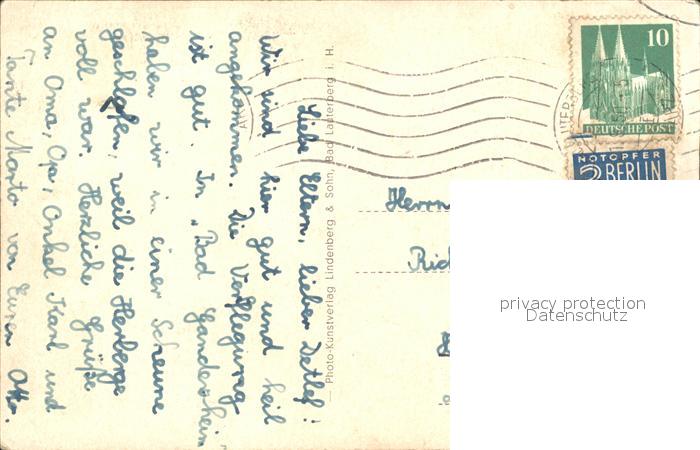 Liebe Eltern, lieber Detlef!
Wir sind hier gut und heil
angekommen. Die Verpflegung
ist gut. In „Bad Gandersheim
haben wir in einer Scheune
geschlafen, weil die Herberge
voll war. Herzliche Grüße
an Oma, Opa, Onkel Karl und
Tante Marta von Eurem Otto.
— Photo-Kunstverlag Lindenberg & Sohn, Bad Lauterberg i. H.
10
DEUTSCHE POST
NOTOPFER
2 BERLIN
Herrn
privacy protection
Datenschutz